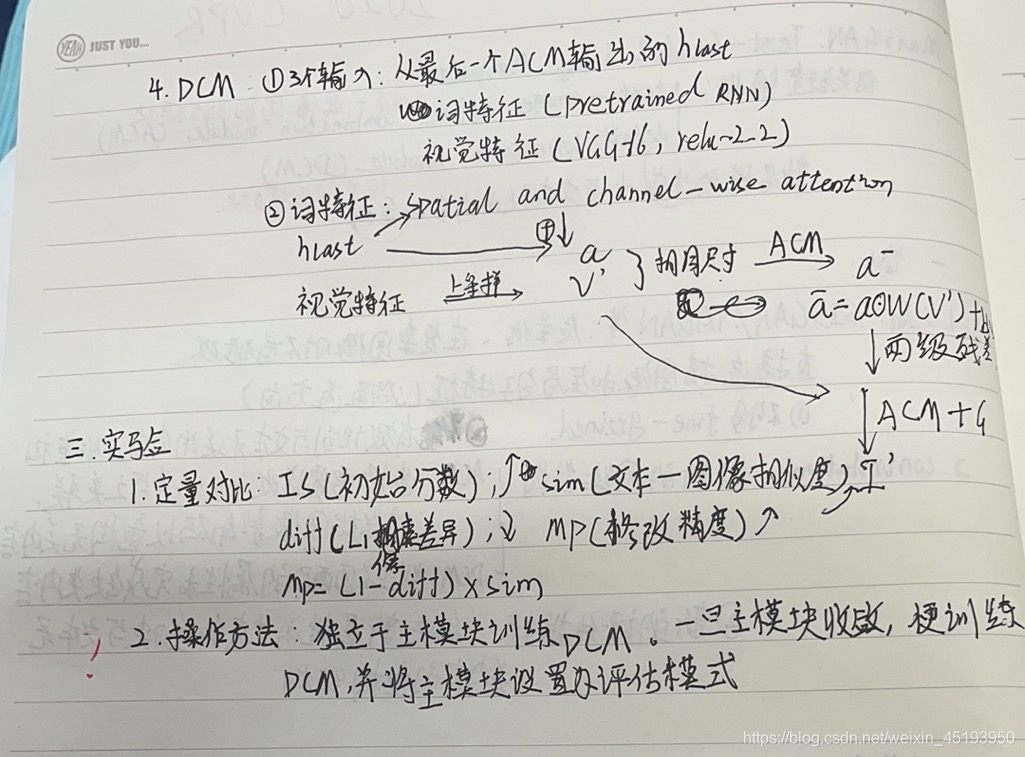 YEAH JUST YOU...
4. DCM ①3个输入: 从最后一个ACM输出的hlast
词特征 (pretrained RNN)
视觉特征 (VGG-16, relu-2-2)
②词特征: spatial and channel-wise attention
hlast
⊕
a
视觉特征 上采样 V' } 相同尺寸 ACM a⁻
ā = a⊙W(V')+b
两级残差
ACM+G
三.实验
1. 定量对比: IS(初始分数),↑ sim(文本-图像相似度)↑ I'
diff(L1像素差异);↓ mp(修改精度)↑
mp=(1-diff)×sim
2. 操作方法: 独立于主模块训练DCM。一旦主模块收敛, 便训练
DCM,并将主模块设置为评估模式
https://blog.csdn.net/weixin_45193950